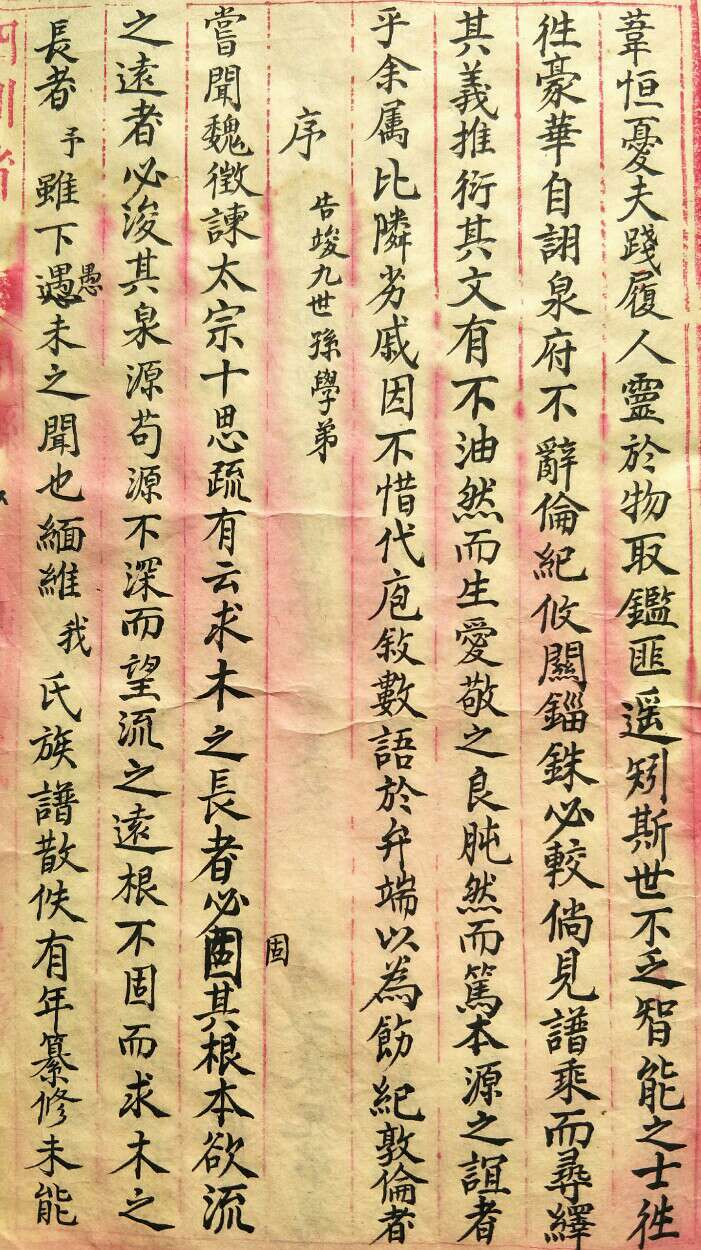 葦恒憂夫踐履人靈於物取鑑匪遥矧斯世不乏智能之士徃
徃豪華自詡泉府不辭倫紀攸關錙銖必較倘見譜乘而尋繹
其義推衍其文有不油然而生愛敬之良肫然而篤本源之誼者
乎余属比隣劣戚因不惜代庖敘數語於弁端以為飭紀敦倫者
序
告竣九世孫學弟
嘗聞魏徵諫太宗十思疏有云求木之長者必固其根本欲流
固
之遠者必浚其泉源苟源不深而望流之遠根不固而求木之
長者予雖下遇未之聞也緬維我氏族譜散佚有年纂修未能
愚